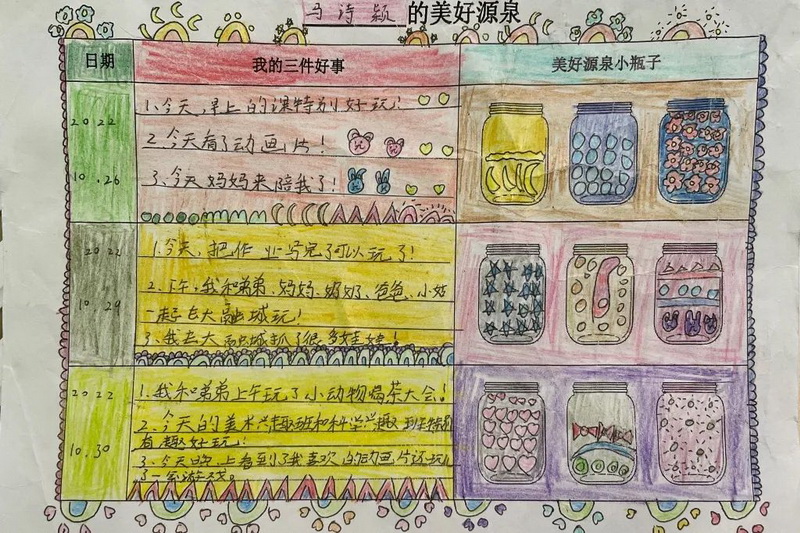 马诗颖的美好源泉
日期 我的三件好事 美好源泉小瓶子
2022
10.26
1、今天,早上的课特别好玩!
2、今天看了动画片!
3、今天妈妈来陪我了!
2022
10.29
1.今天,把作业写完了可以玩了!
2、下午,我和弟弟、妈妈、奶奶、爸爸、小姑
一起去大融城玩!
3、我去大融城抓了很多娃娃!
2022
10.30
1.我和弟弟上午玩了小动物喝茶大会!
2、今天的美术兴趣班和科学兴趣班特别
有趣好玩!
3、今天晚上看到了我喜欢的动画片还玩
了一会游戏。